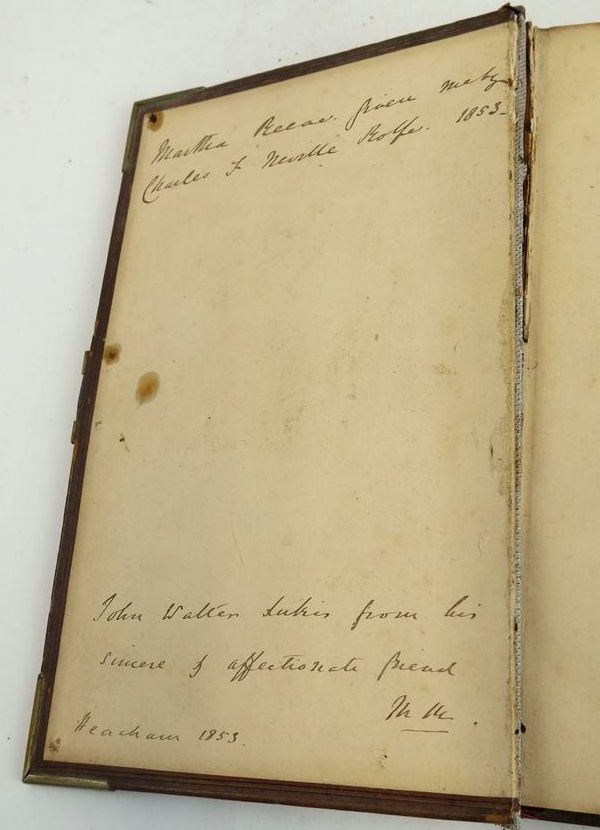 Martha Reeve. given me by
Charles F Neville Rolfe. 1853-
John Walter Lukis from his
sincere & affectionate friend
M
Heacham 1853.